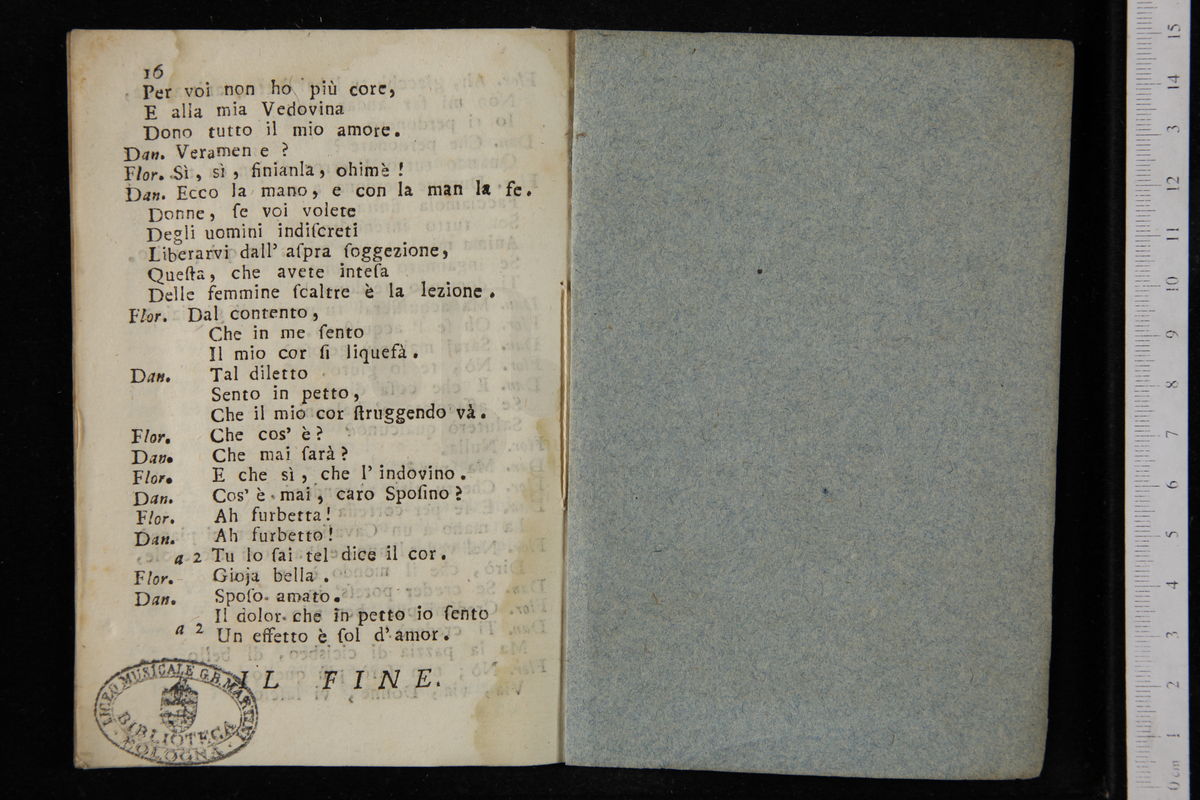 16
Per voi non ho più core,
E alla mia Vedovina
Dono tutto il mio amore.
Dan. Veramen e ?
Flor. Sì, sì, finianla, ohimè !
Dan. Ecco la mano, e con la man la fe.
Donne, ſe voi volete
Degli uomini indiſcreti
Liberarvi dall' aſpra ſoggezione,
Queſta, che avete inteſa
Delle femmine ſcaltre è la lezione.
Flor. Dal contento,
Che in me ſento
Il mio cor ſi liquefà.
Dan. Tal diletto
Sento in petto,
Che il mio cor ſtruggendo và.
Flor. Che cos' è?
Dan. Che mai ſarà?
Flor. E che sì, che l' indovino.
Dan. Cos' è mai, caro Spoſino?
Flor. Ah furbetta!
Dan. Ah furbetto!
a 2 Tu lo ſai tel dice il cor.
Flor. Gioja bella.
Dan. Spoſo amato.
Il dolor che in petto io ſento
a 2 Un effetto è ſol d' amor.
IL FINE.
LICEO MUSICALE G.B. MARTINI
BIBLIOTECA
BOLOGNA
15
14
13
12
11
10
9
8
7
6
5
4
3
2
1
0 cm